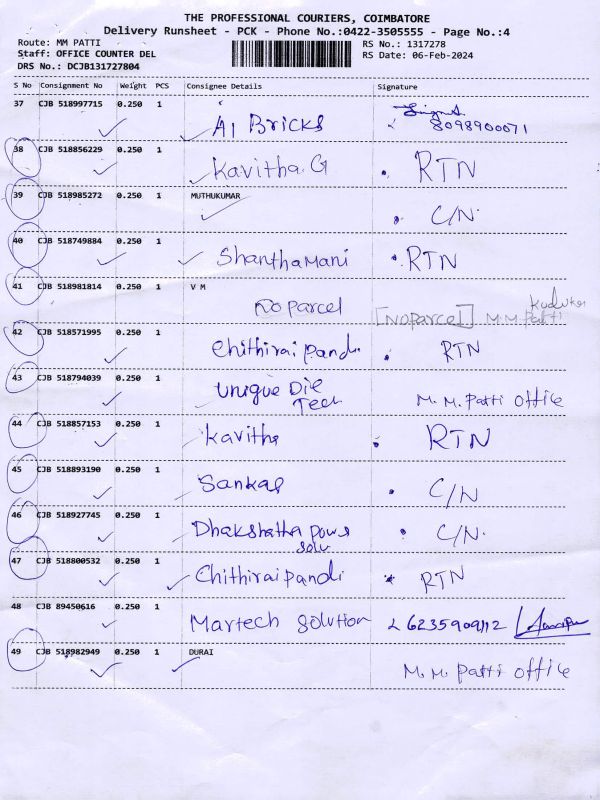 THE PROFESSIONAL COURIERS, COIMBATORE
Delivery Runsheet - PCK - Phone No.:0422-3505555 - Page No.:4
Route: MM PATTI RS No.: 1317278
Staff: OFFICE COUNTER DEL RS Date: 06-Feb-2024
DRS No.: DCJB131727804
S No Consignment No Weight PCS Consignee Details Signature
37 CJB 518997715 0.250 1
A1 Bricks 8098900071
38 CJB 518856229 0.250 1
Kavitha G RTN
39 CJB 518985272 0.250 1 MUTHUKUMAR
C/N
40 CJB 518749884 0.250 1
Shanthamani RTN
41 CJB 518981814 0.250 1 V M
No parcel [No Parcel] M.M Patti
42 CJB 518571995 0.250 1
Chithirai pandi RTN
43 CJB 518794039 0.250 1
Unique Die M. M. Patti office
Tech
44 CJB 518857153 0.250 1
Kavitha RTN
45 CJB 518893190 0.250 1
Sankar C/N
46 CJB 518927745 0.250 1
Dhakshatha C/N.
Solu
47 CJB 518800532 0.250 1
Chithirai pandi RTN
48 CJB 89450616 0.250 1
Martech Solution
49 CJB 518982949 0.250 1 DURAI
M. M. Patti office